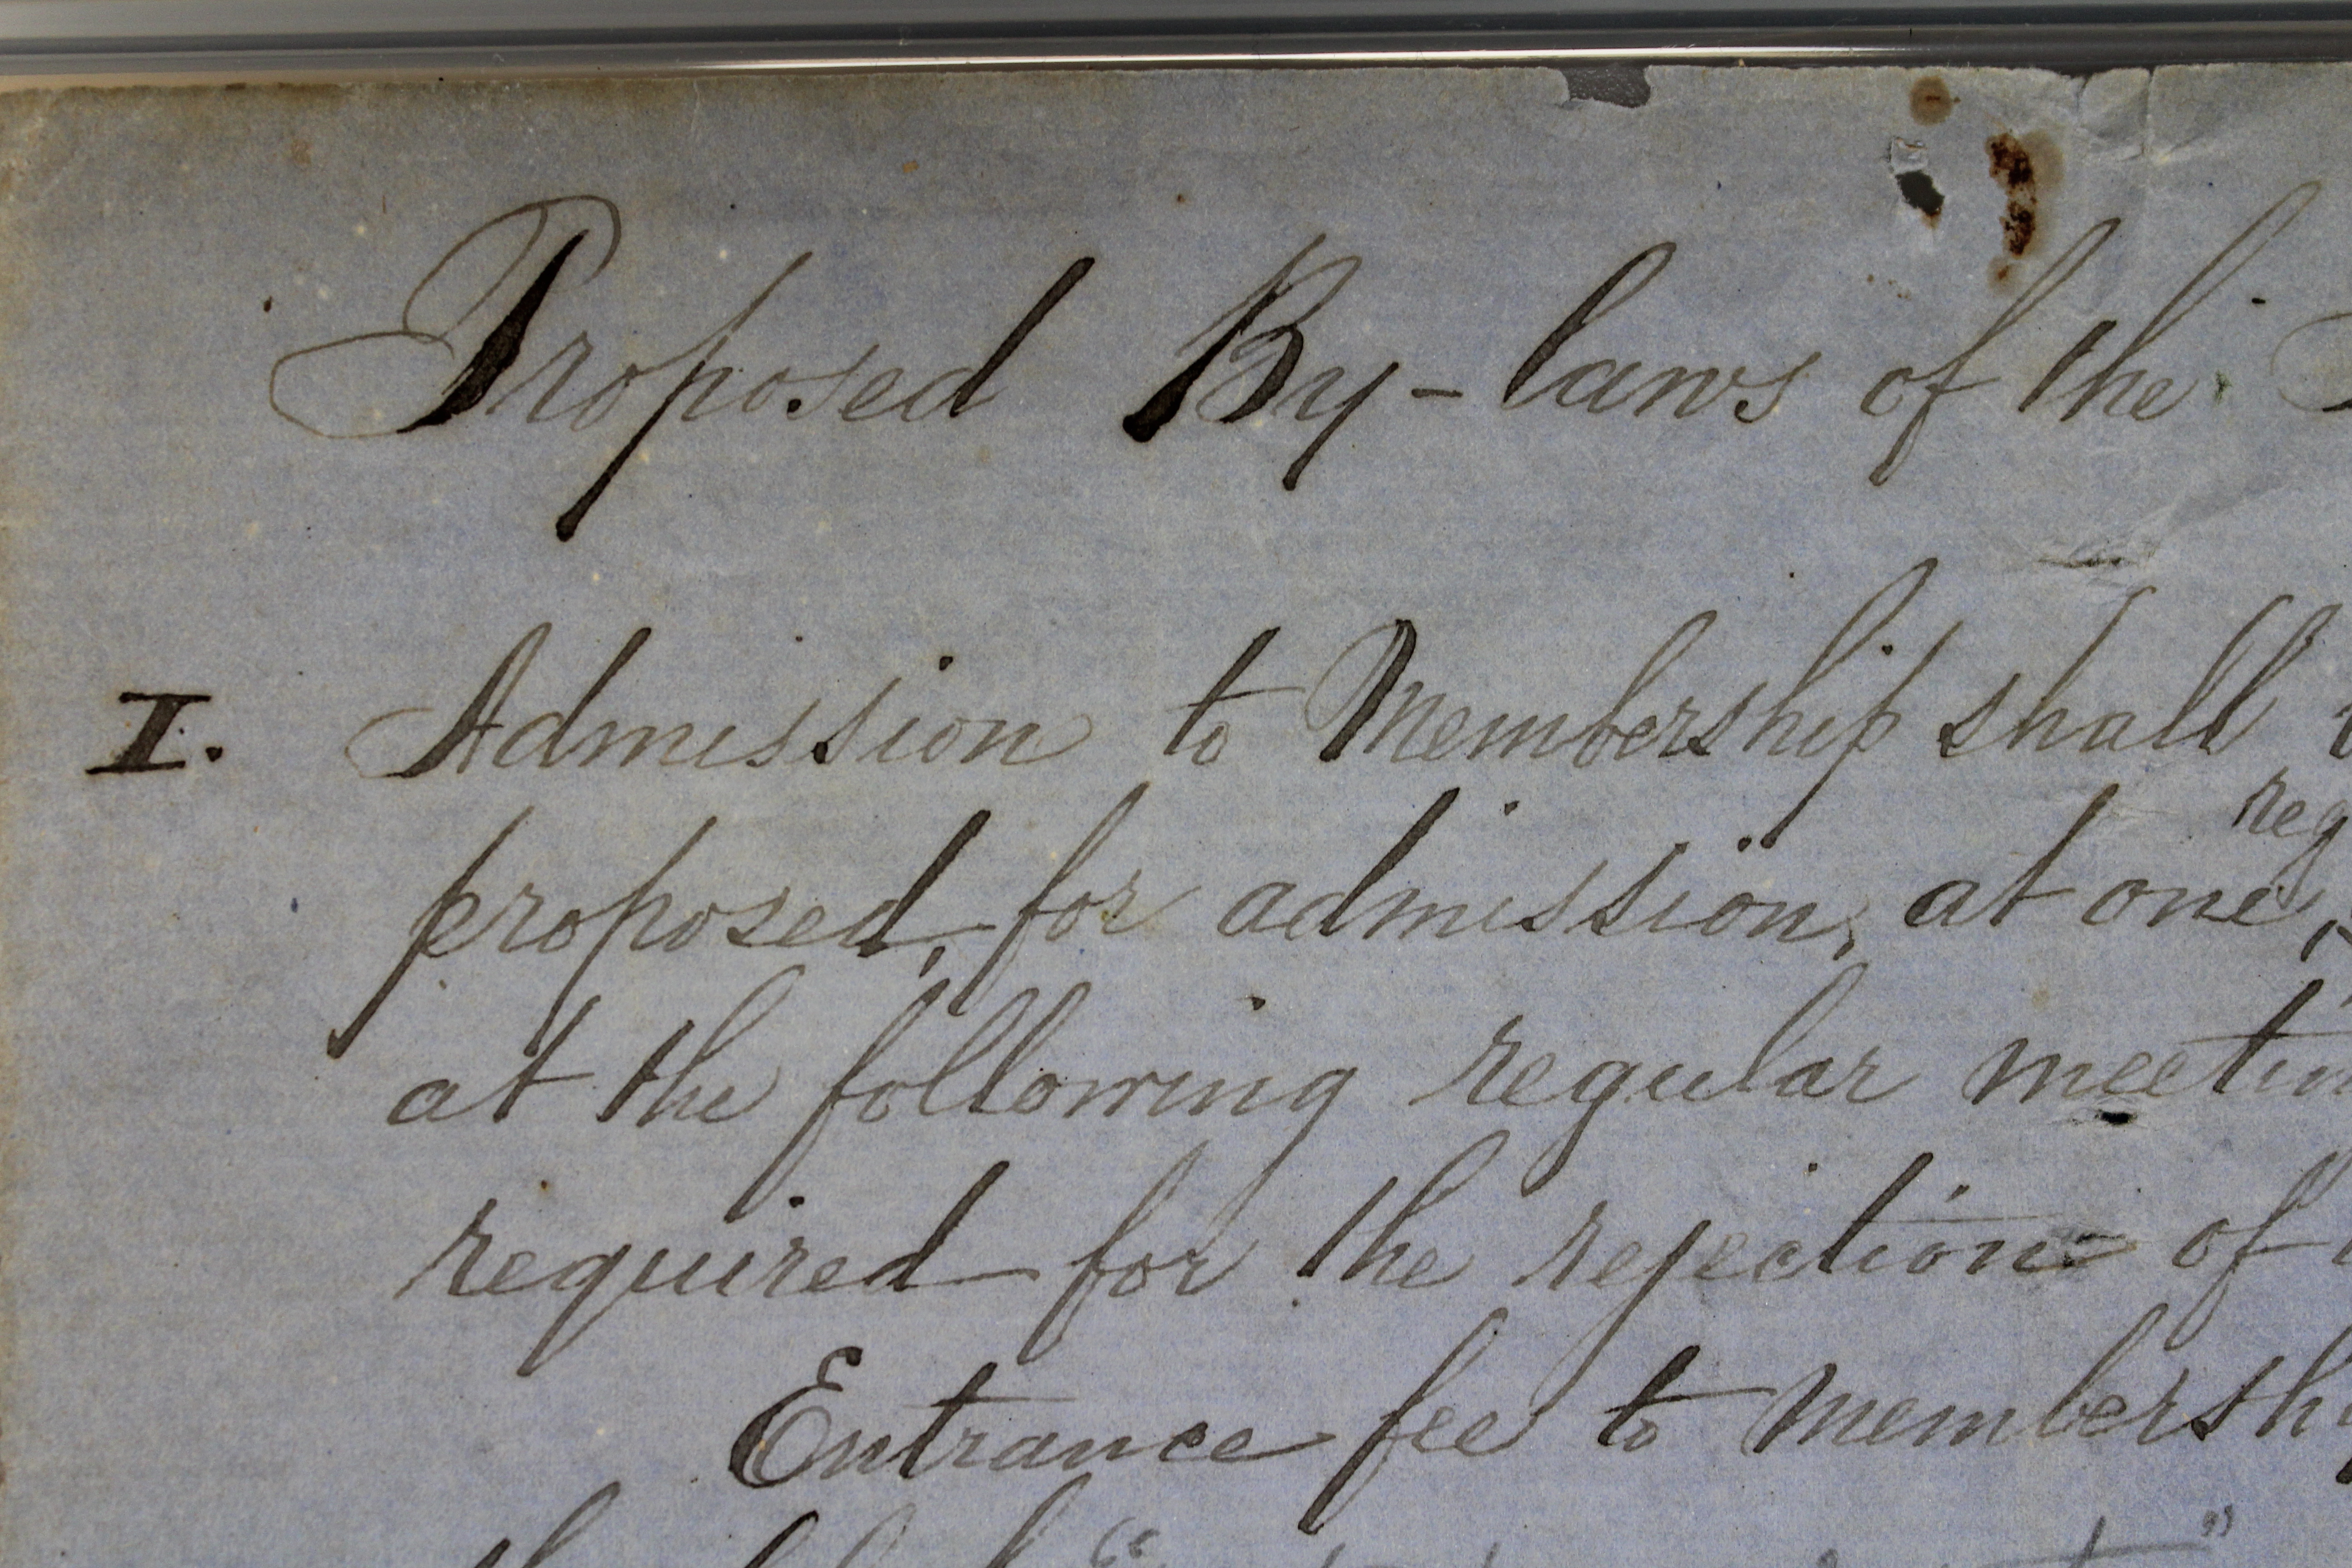 Proposed By-laws of the
I. Admission to Membership shall
reg
proposed, for admission, at one,
at the following regular meetin
required for the rejection of
Entrance fee to membersh